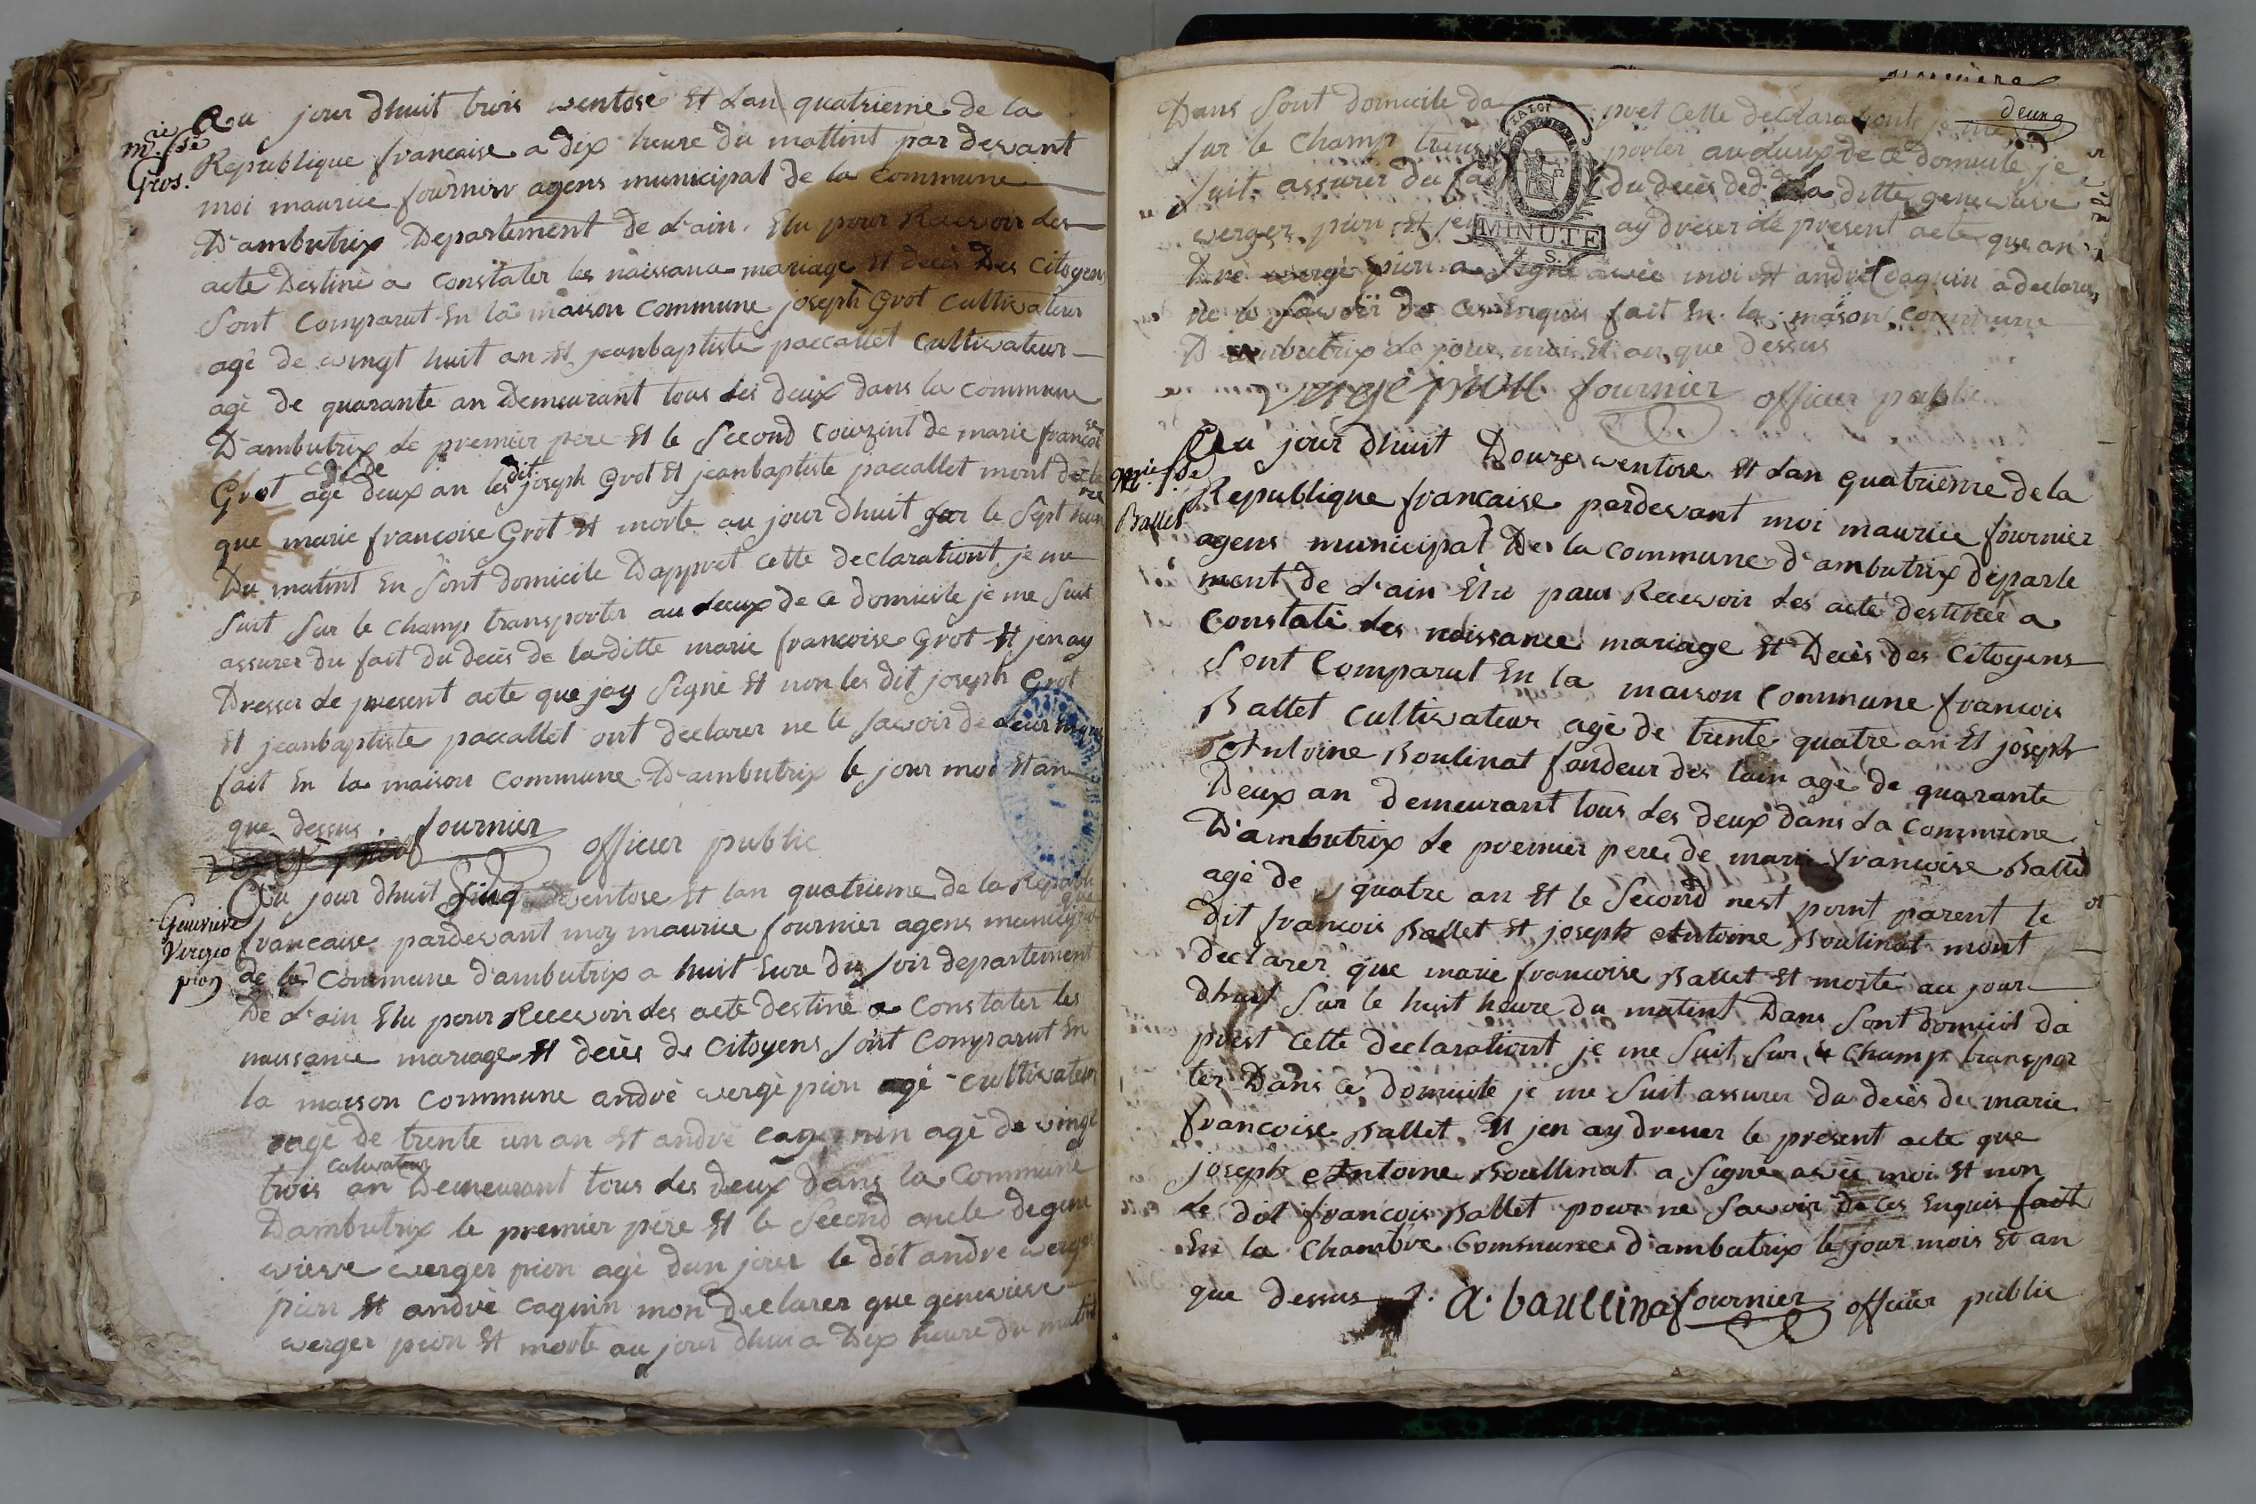 m.rie fse
Gros.
Au jour dhuit trois ventose Et Lan quatrieme de la
Republique francaise a dix heure du mattint par devant
moi maurice fournier agens municipal de la Commune
D'ambutrix Departement de L'ain. Elu pour Recevoir les
acte Destiné a Constater les naissance mariage Et decès Des Citoyens
Sont Comparut En la maison Commune joseph Grot Cultivateur
agé de vingt huit an Et jeanbaptiste paccallet Cultivateur
agé de quarante an Demeurant tous Les deux dans la Commune
D'ambutrix Le premier pere Et le Second Couzint de marie francoise
Grot agé deux an les dit joseph Grot Et jeanbaptiste paccallet mont declare
que marie francoise Grot Et morte au jour dhuit sur le Sept heure
Du matint En Sont domicile Dappret Cette declarationt je me
Suit Sur le Champ transporter au Lieux de Ce domicile je me Suit
assurer du fait du decès de la ditte marie francoise Grot Et jen ay
Dresser Le present acte que jay Signé Et non les dit joseph Grot
Et jeanbaptiste paccallet ont declarer ne le Savoir de
fait En la maison Commune D'ambutrix le jour moi Et an
que dessus. fournier officier public
Genevieve
Vergeo
pion
Au jour dhuit Sinq ventose Et lan quatrieme de la Republique
francaise pardevant moy maurice fournier agens municipal
de la Commune d'ambutrix a huit Eure du Soir departement
De L'ain Elu pour Recevoir les acte destiné a Constater les
naissance mariage Et decès de Citoyens Sont Comparut En
la maison Commune andré vergé pion agé Cultivateur
agé de trente un an Et andré cagnin agé de vingt
trois an Cultivateur Demeurant tous Les deux dans la Commune
Dambutrix le premier pere Et le Second oncle de gene
vieve verger pion agé dun jour le dit andre verger
pion Et andré cagnin mon Declarer que genevieve
verger pion Et morte au jour dhui a Dix heure du matint
deung
Dans Sont domicile da pret Cette declarationt je me
Sur le Champ trans porter au Lieux de Ce domicile je
Suit assurer du fa du decès de la ditte genevieve
verger pion Et jen ay dreser Le present acte que an
Dré vergé pion a Signé avec moi Et andré Cagnin a declarer
ne le Savoir de Ces Enquis fait En la maison Commune
D'ambutrix Le jour mois Et an que Dessus
vergé pion fournier officier public
MINUTE
S.
Mrie fse
Ballet
Au jour dhuit Douze ventose Et Lan quatrieme de la
Republique francaise pardevant moi maurice fournier
agens municipal De la Commune d'ambutrix departe
ment de L'ain Elu pour Recevoir Les acte destinée a
Constaté des naissance mariage Et Decès des Citoyens
Sont Comparut En la maison Commune francois
Ballet Cultivateur agé de trente quatre an Et joseph
Antoine Boulinat fondeur des lain agé de quarante
Deux an demeurant tous Les deux dans La Commune
D'ambutrix Le premier pere de marie francoise Ballet
agé de quatre an Et le Second nest point parent le
dit francois Ballet Et joseph Antoine Boulinat mont
declarer que marie francoise Ballet Et morte au jour
dhuit Sur le huit heure du matint Dans Sont domicil da
prest Cette declarationt je me Suit Sur le Champ transpor
ter Dans Ce domicile je me Suit assurer du decès de marie
francoise Ballet Et jen ay dresser le present acte que
joseph Antoine Boullinat a Signé avec moi Et non
Le dot francois Ballet pour ne Savoir de Ces Enquis fait
En la Chambre Commune d'ambutrix le jour mois Et an
que dessus A. baullina fournier officier public